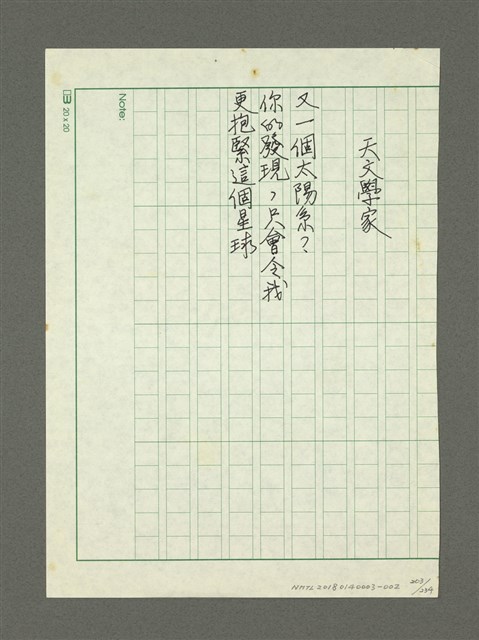 天文學家
又一個太陽系？
你的發現，只會令我
更抱緊這個星球
Note:
20 x 20
NMTL20180140003-002
203/234